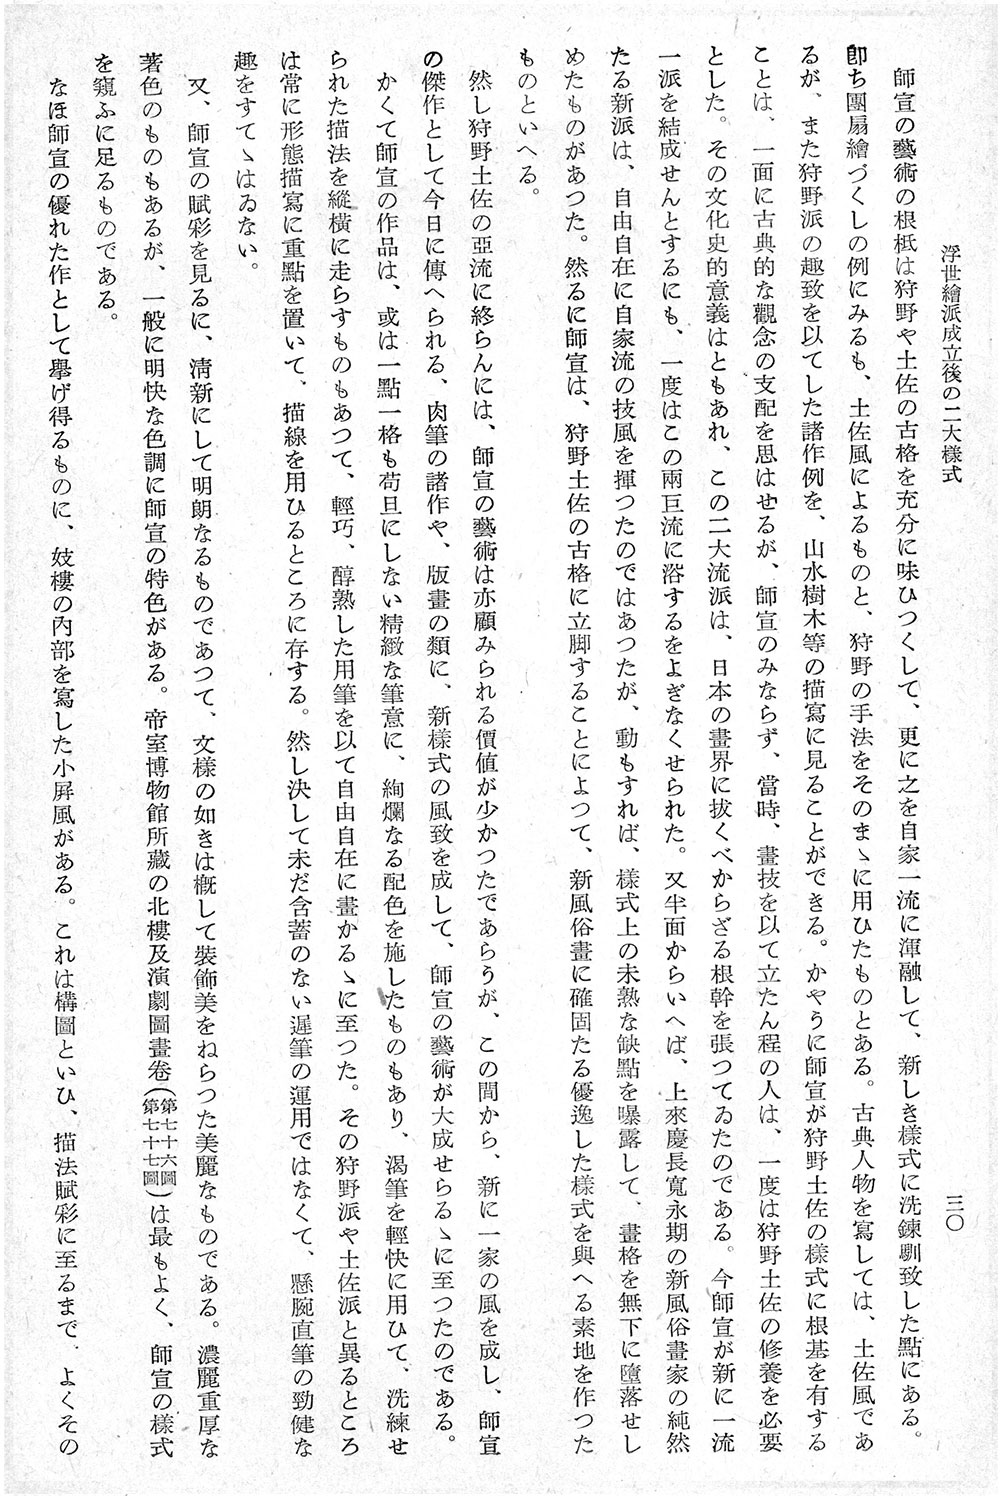 浮世繪派成立後の二大樣式
三〇
師宣の藝術の根柢は狩野や土佐の古格を充分に味ひつくして、更に之を自家一流に渾融して、新しき樣式に洗鍊馴致した點にある。
卽ち團扇繪づくしの例にみるも、土佐風によるものと、狩野の手法をそのまゝに用ひたものとある。古典人物を寫しては、土佐風であ
るが、また狩野派の趣致を以てした諸作例を、山水樹木等の描寫に見ることができる。かやうに師宣が狩野土佐の樣式に根基を有する
ことは、一面に古典的な觀念の支配を思はせるが、師宣のみならず、當時、畫技を以て立たん程の人は、一度は狩野土佐の修養を必要
とした。その文化史的意義はともあれ、この二大流派は、日本の畫界に拔くべからざる根幹を張つてゐたのである。今師宣が新に一流
一派を結成せんとするにも、一度はこの兩巨流に浴するをよぎなくせられた。又半面からいへば、上來慶長寬永期の新風俗畫家の純然
たる新派は、自由自在に自家流の技風を揮つたのではあつたが、動もすれば、樣式上の未熟な缺點を曝露して、畫格を無下に墮落せし
めたものがあつた。然るに師宣は、狩野土佐の古格に立脚することによつて、新風俗畫に確固たる優逸した樣式を與へる素地を作つた
ものといへる。
然し狩野土佐の亞流に終らんには、師宣の藝術は亦顧みられる價値が少かつたであらうが、この間から、新に一家の風を成し、師宣
の傑作として今日に傳へられる、肉筆の諸作や、版畫の類に、新樣式の風致を成して、師宣の藝術が大成せらるゝに至つたのである。
かくて師宣の作品は、或は一點一格も苟旦にしない精緻な筆意に、絢爛なる配色を施したものもあり、渴筆を輕快に用ひて、洗練せ
られた描法を縱橫に走らすものもあつて、輕巧、醇熟した用筆を以て自由自在に畫かるゝに至つた。その狩野派や土佐派と異るところ
は常に形態描寫に重點を置いて、描線を用ひるところに存する。然し決して未だ含蓄のない遲筆の運用ではなくて、懸腕直筆の勁健な
趣をすてゝはゐない。
又、師宣の賦彩を見るに、淸新にして明朗なるものであつて、文樣の如きは槪して裝飾美をねらつた美麗なものである。濃麗重厚な
著色のものもあるが、一般に明快な色調に師宣の特色がある。帝室博物館所藏の北樓及演劇圖畫卷(第七十六圖第七十七圖)は最もよく、師宣の樣式
を窺ふに足るものである。
なほ師宣の優れた作として擧げ得るものに、妓樓の內部を寫した小屛風がある。これは構圖といひ、描法賦彩に至るまで、よくその